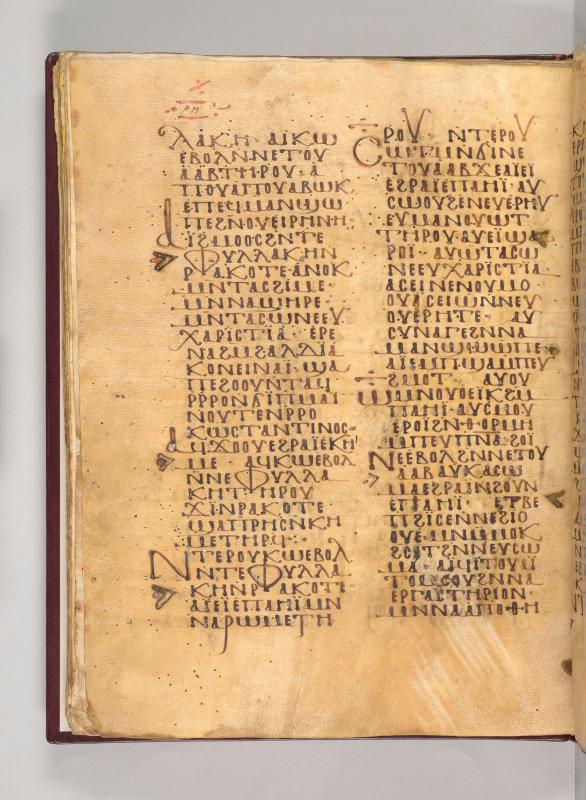 ⲣⲏ
ⲗⲁⲕⲏ · ⲁⲓⲕⲱ
ⲉⲃⲟⲗⲛⲛⲉⲧⲟⲩ
ⲁⲁⲃⲧⲏⲣⲟⲩ · ⲁ
ⲡⲟⲩⲁⲡⲟⲩⲁⲃⲱⲕ
ⲉⲡⲉϥⲙⲁⲛϣⲱ
ⲡⲉϩⲛⲟⲩⲉⲓⲣⲏⲛⲏ
ⲫⲩⲗⲗⲁⲕⲏⲛ
ⲣⲁⲕⲟⲧⲉ · ⲁⲛⲟⲕ
ⲙⲛⲧⲁⲥϩⲓⲙⲉ ·
ⲙⲛⲛⲁϣⲏⲣⲉ ·
ⲙⲛⲧⲁⲥⲱⲛⲉⲉⲩ
ⲭⲁⲣⲓⲥⲧⲓⲁ · ⲉⲣⲉ
ⲛⲁϭⲙϭⲁⲗⲗⲓⲁ
ⲕⲟⲛⲉⲓⲛⲁⲓ · ϣⲁ
ⲡⲉϩⲟⲟⲩⲛⲧⲁϥ
ⲣⲣⲣⲟⲛϭⲓⲡⲙⲁⲓ
ⲛⲟⲩⲧⲉⲛⲣⲣⲟ
ⲕⲱⲥⲧⲁⲛⲧⲓⲛⲟⲥ ·
ϥϫⲟⲟⲩⲉϩⲣⲁⲓⲉⲕⲏ
ⲙⲉ · ⲁϥⲕⲱⲉⲃⲟⲗ
ⲛⲛⲉⲫⲩⲗⲗⲁ
ⲕⲏⲧⲏⲣⲟⲩ
ϫⲓⲛⲣⲁⲕⲟⲧⲉ
ϣⲁⲡⲣⲏⲥⲛⲕⲏ
ⲙⲉⲧⲏⲣϥ ·
ⲛⲧⲉⲣⲟⲩⲕⲱⲉⲃⲟⲗ
ⲛⲛⲧⲉⲫⲩⲗⲗⲁ
ⲕⲏⲛⲣⲁⲕⲟⲧⲉ
ⲁⲓⲉⲓⲉⲡⲁⲙⲓⲙⲛ
ⲛⲁⲣⲱⲙⲉⲧⲏ
ⲣⲟⲩ · ⲛⲧⲉⲣⲟⲩ
ⲥⲱⲧⲙⲛϭⲓⲛⲉ
ⲧⲟⲩⲁⲁⲃϫⲉⲁⲓⲉⲓ
ⲉϩⲣⲁⲓⲉⲡⲁⲙⲓ · ⲁⲩ
ⲥⲱⲟⲩϩⲉⲛⲉⲩⲉⲣⲏⲩ
ⲉⲩⲙⲁⲛⲟⲩⲱⲧ
ⲧⲏⲣⲟⲩ · ⲁⲩⲉⲓϣⲁ
ⲣⲟⲓ · ⲁⲩⲱⲧⲁⲥⲱ
ⲛⲉⲉⲩⲭⲁⲣⲓⲥⲧⲓⲁ
ⲁⲥⲉⲓⲛⲉⲛⲟⲩⲙⲟ
ⲟⲩⲁⲥⲉⲓⲱⲛⲛⲉⲩ
ⲟⲩⲉⲣⲏⲧⲉ · ⲁⲩ
ⲥⲩⲛⲁⲅⲉϩⲛⲛⲁ
ⲙⲁⲛϣⲱⲡⲉ ·
ϩⲓⲟⲧ · ⲁⲩⲟⲩ
ⲱⲙⲛⲟⲩⲟⲉⲓⲕϩⲙ
ⲡⲁⲏⲓ · ⲁⲩⲥⲙⲟⲩ
ⲉⲣⲟⲓϩⲛ · ⲑ · ⲟⲣⲙⲏ
ⲙⲡⲉⲩⲡⲛⲁ · ϭⲟⲓ
ⲛⲉⲉⲃⲟⲗϩⲛⲛⲉⲧⲟⲩ
ⲁⲁⲃⲁⲩⲕⲁⲥⲱ
ⲙⲁⲉϩⲣⲁⲓⲛϩⲟⲩⲛ
ⲉⲡⲁⲙⲓ · ⲉⲧⲃⲉ
ⲡϩⲓⲥⲉⲛⲛⲉϩⲓⲟ
ⲟⲩⲉ · ⲙⲛⲡⲙⲟⲕ
ϩⲥⲉⲧϩⲛⲛⲉⲩⲥⲱ
ⲙⲁ · ⲁⲓϥⲓⲧⲟⲩⲁⲓ
ⲧⲟⲙⲥⲟⲩϩⲛⲛⲁ
ⲉⲣⲅⲁⲥⲧⲏⲣⲓⲟⲛ ·
ⲙⲛⲛⲁⲁⲡⲟⲑⲏ